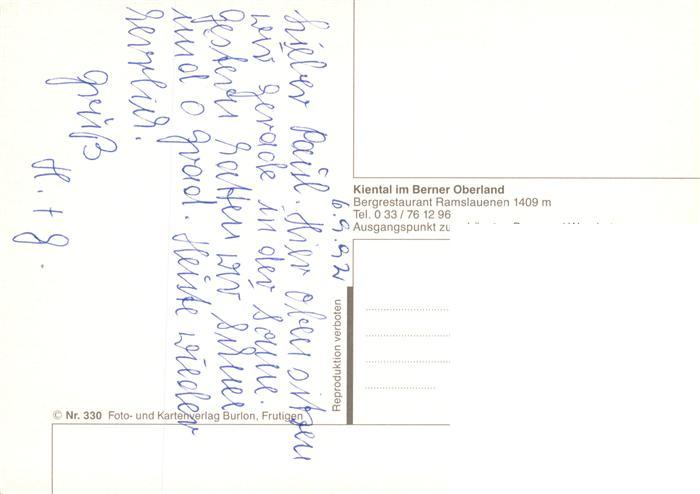 6.9.92
Lieber Paul. Hier oben sitzen
wir gerade in der Sonne.
Gestern hatten wir Schnee
und 0 Grad. Heute wieder
herrlich.
Gruß
H. + J.
Kiental im Berner Oberland
Bergrestaurant Ramslauenen 1409 m
Tel. 0 33 / 76 12 96
Ausgangspunkt zu
Reproduktion verboten
© Nr. 330 Foto- und Kartenverlag Burlon, Frutigen